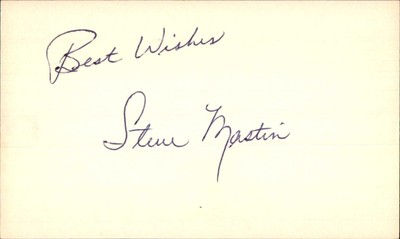 Best Wishes
Steve Mastin